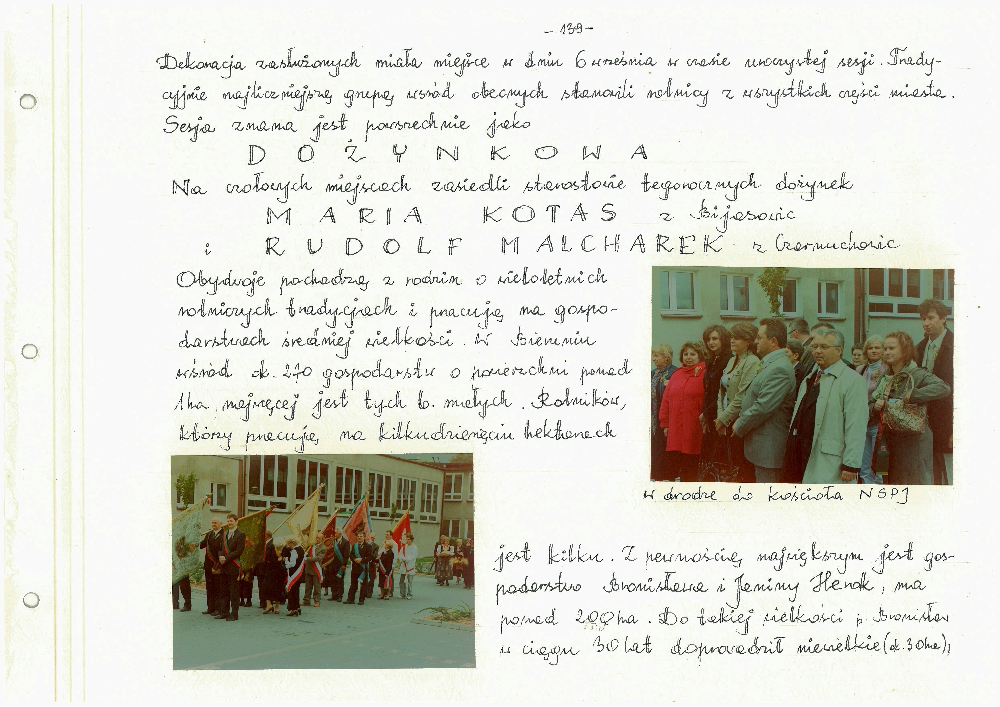 - 139 -
Dekoracja zasłużonych miała miejsce w dniu 6 września w czasie uroczystej sesji. Trady-
cyjnie najliczniejszą grupę wśród obecnych stanowili rolnicy z wszystkich części miasta.
Sesja znana jest powszechnie jako
DOŻYNKOWA
Na czołowych miejscach zasiedli starostowie tegorocznych dożynek
MARIA KOTAS z Bijasowic
i RUDOLF MALCHAREK z Czarnuchowic
Obydwoje pochodzą z rodzin o wieloletnich
rolniczych tradycjach i pracują na gospo-
darstwach średniej wielkości. W Bieruniu
wśród ok. 270 gospodarstw o powierzchni ponad
1ha najwięcej jest tych b. małych. Rolników,
którzy pracują na kilkudziesięciu hektarach
w drodze do kościoła NSPJ
jest kilku. Z pewnością największym jest gos-
podarstwo Bronisława i Janiny Henok, ma
ponad 200 ha. Do takiej wielkości p. Bronisław
w ciągu 30 lat doprowadził niewielkie (ok. 30ha),